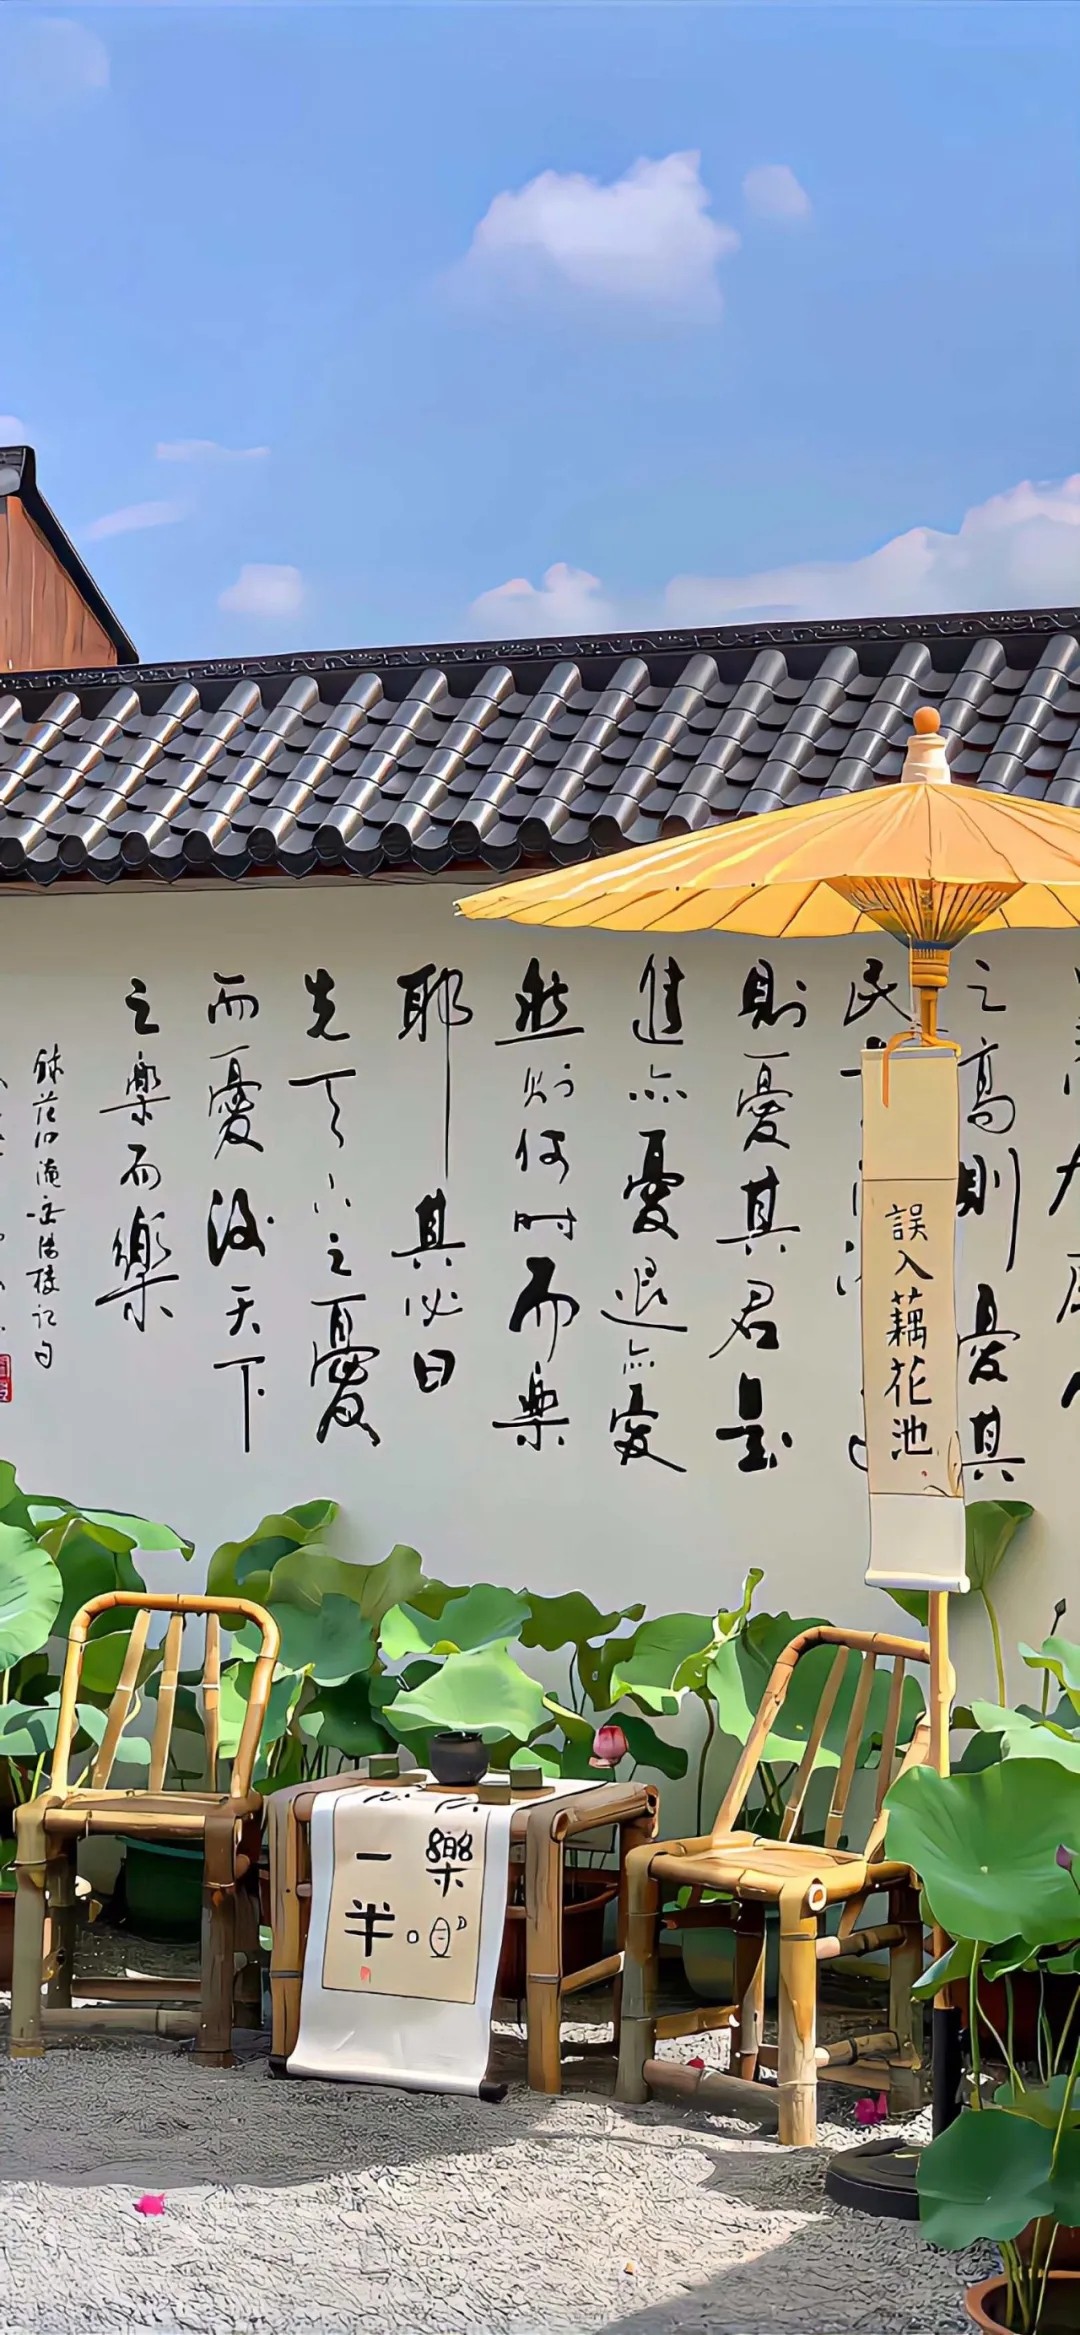 之高則憂其
民
則憂其君是
進亦憂退亦憂
然则何时而樂
耶其必曰
先天下之憂
而憂後天下
之樂而樂
録范仲淹岳陽樓記句
誤入藕花池
樂
一半